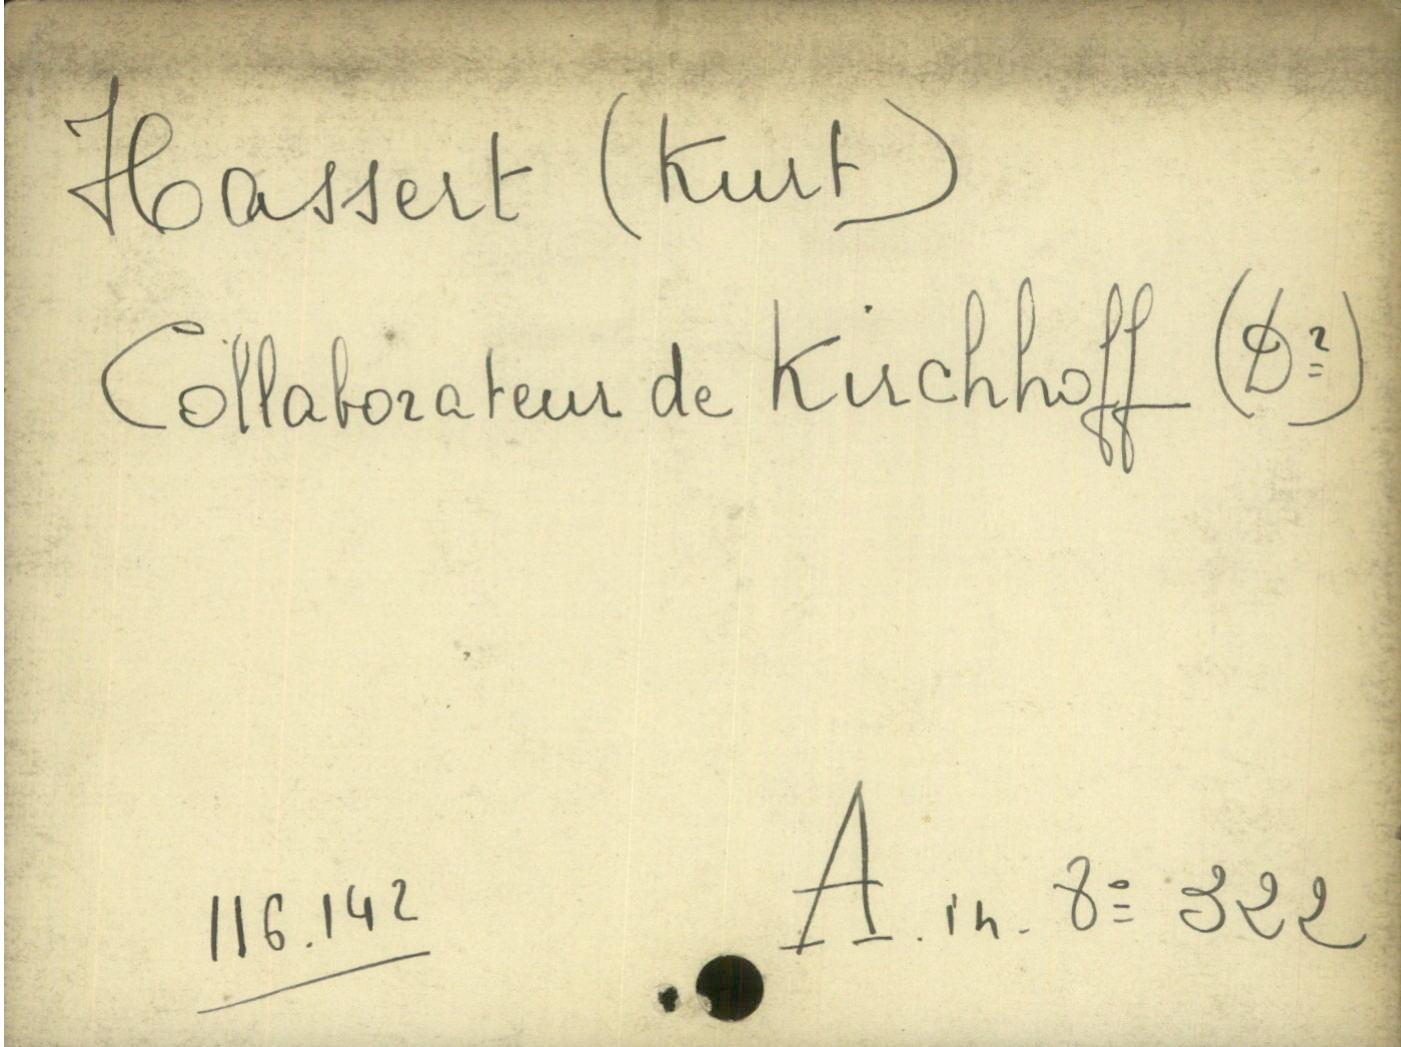 Hassert (Kurt)
Collaborateur de Kirchhoff (Dr)
116.142
A. in. 8º 322